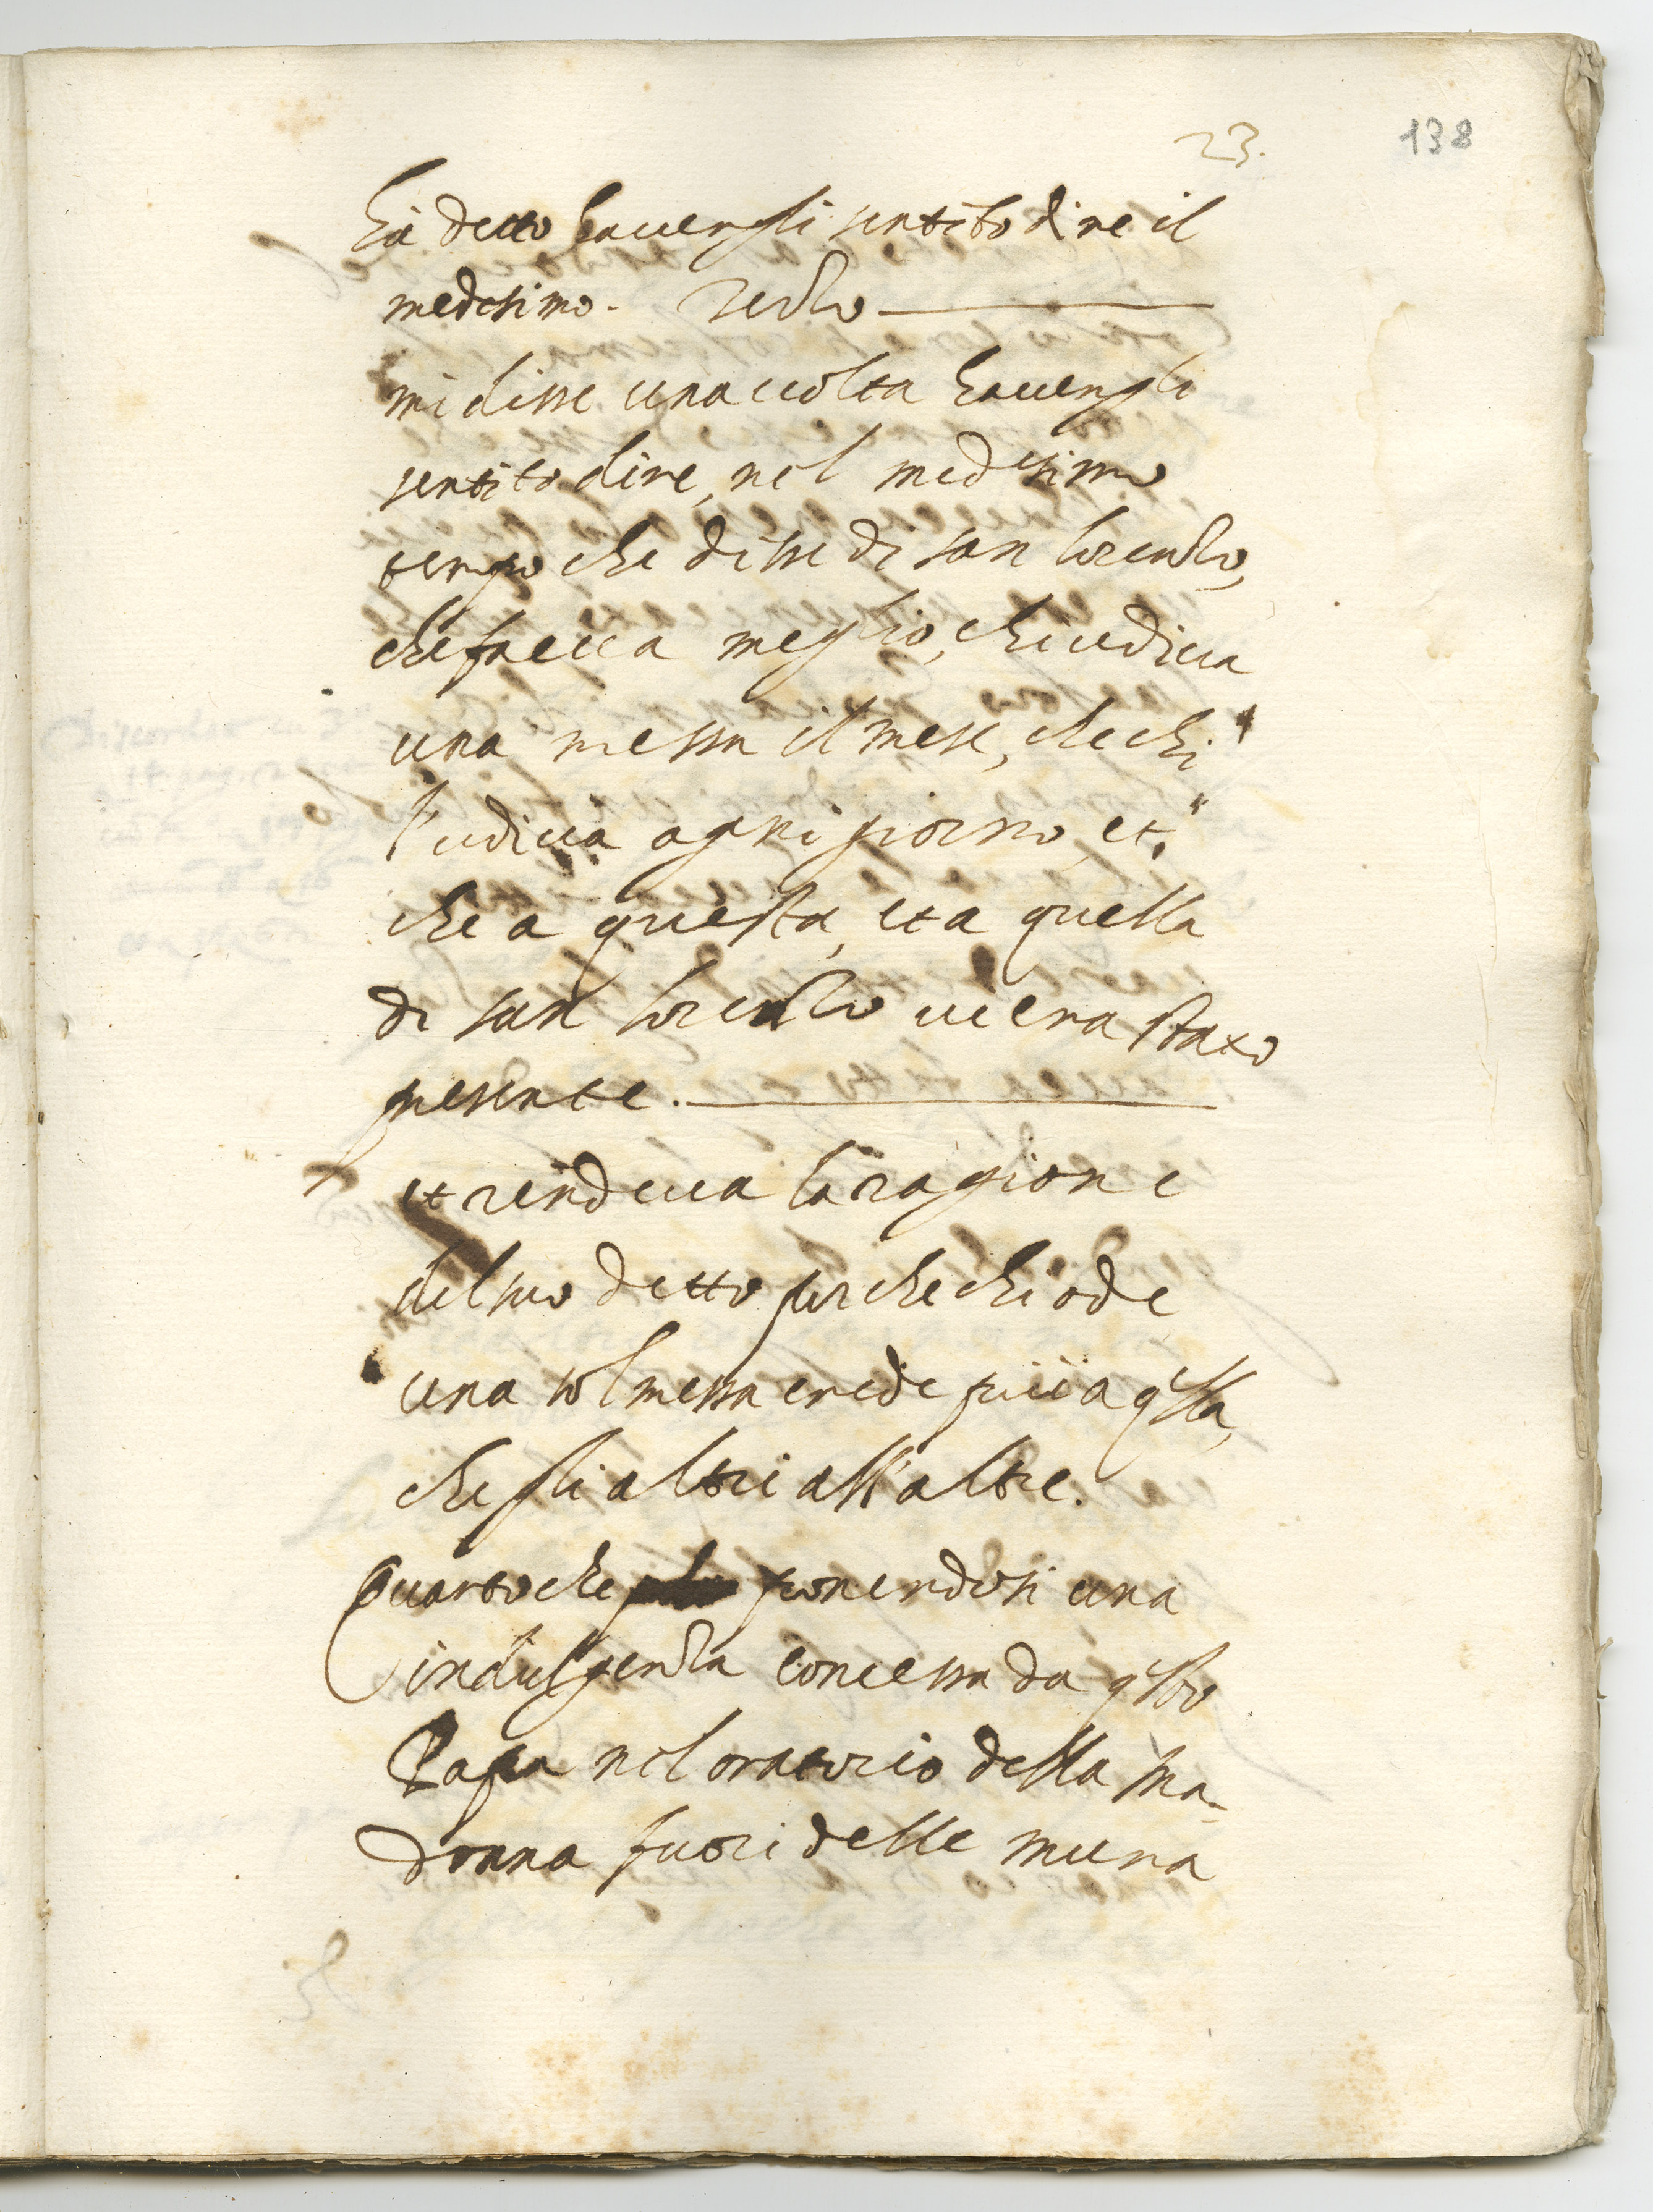 23.
138
hà detto havergli sentito dire il
medesimo. Terzo
mi disse una volta havergli
sentito dire, nel medesimo
tempo che disse di san lorenzo,
che faceva meglio, chi udiva
una messa il mese, che chi
l'udiva ogni giorno, et
che a questa, et a quella
di san lorenzo vi era stato
presente.
et rendeva la ragione
del suo detto perche chi ode
una sol messa crede più a qsta,
che gli altri all'altre.
Quarto che ponendosi una
indulgenza concessa da qsto
Papa nel oratorio della Ma-
donna fuori delle mura